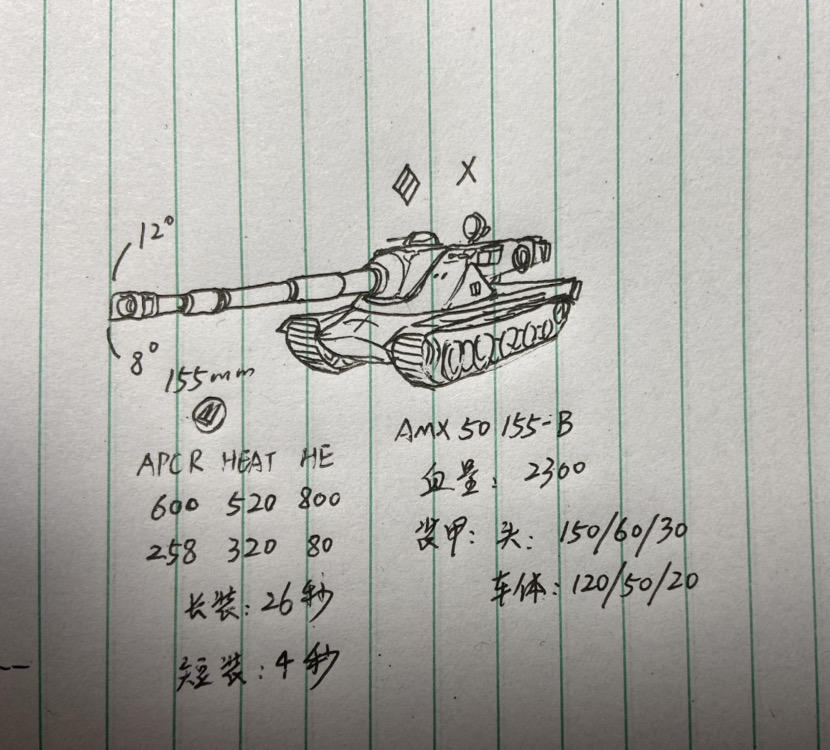 X
12°
8°
155mm
APCR HEAT HE
600 520 800
258 320 80
长装：26秒
短装：4秒
AMX 50 155-B
血量：2300
装甲：头：150/60/30
车体：120/50/20